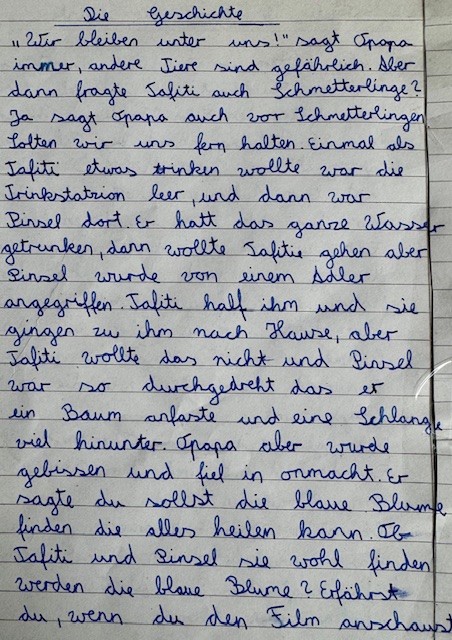 Die Geschichte
„Wir bleiben unter uns!" sagt Opapa
immer, andere Tiere sind gefährlich. Aber
dann fragte Tafiti auch Schmetterlinge?
Ja sagt Opapa auch vor Schmetterlingen
Solten wir uns fern halten. Einmal als
Tafiti etwas trinken wollte war die
Trinkstatzion leer, und dann war
Pinsel dort. Er hatt das ganze Wasser
getrunken, dann wollte Tafitie gehen aber
Pinsel wurde von einem Adler
angegriffen. Tafiti half ihm und sie
gingen zu ihm nach Hause, aber
Tafiti wollte das nicht und Pinsel
war so durchgedreht das er
ein Baum anfaste und eine Schlange
viel hinunter. Opapa aber wurde
gebissen und fiel in onmacht. Er
sagte du sollst die blaue Blume
finden die alles heilen kann. Ob
Tafiti und Pinsel sie wohl finden
werden die blaue Blume? Erfährst
du, wenn du den Film anschaust